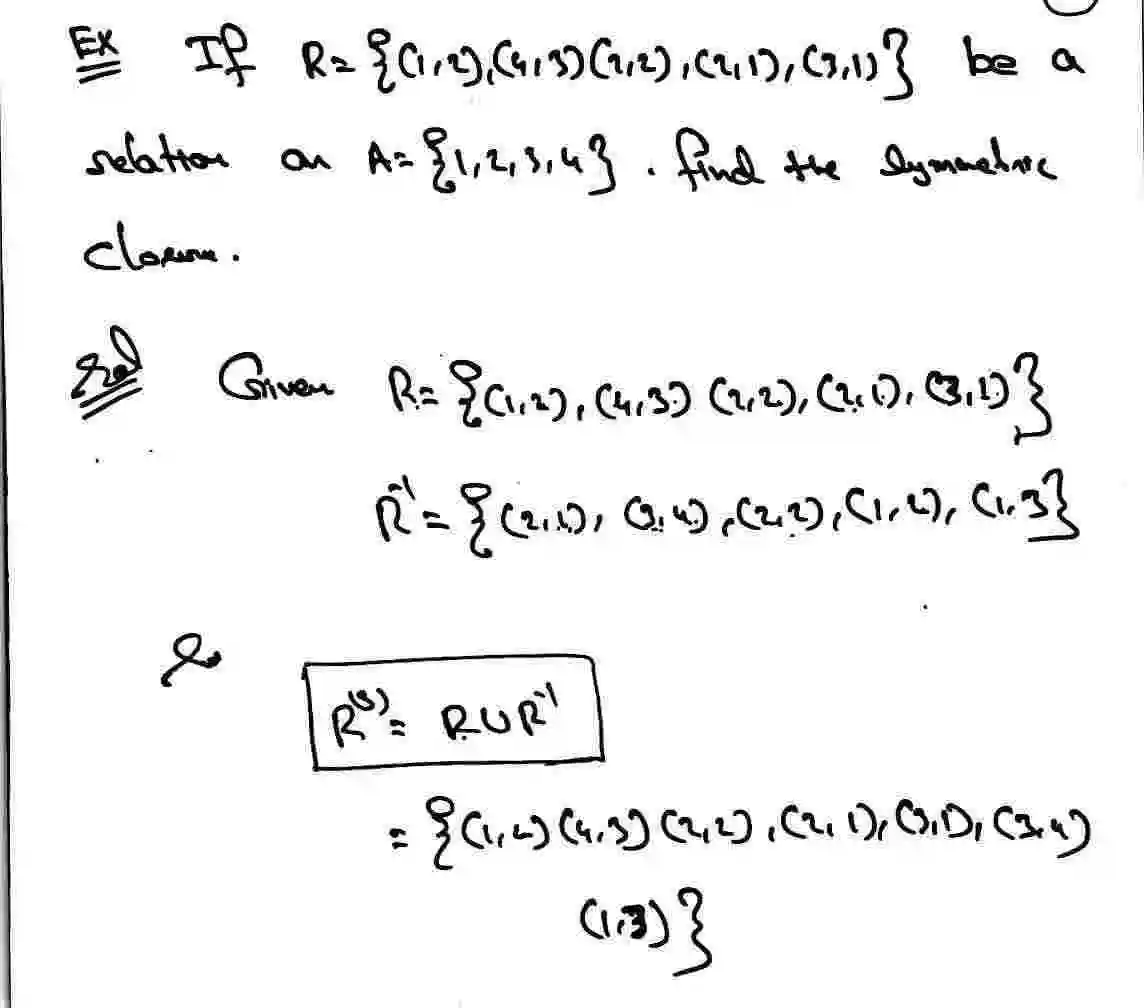 Ex If R = {(1,2),(4,3)(2,2),(2,1),(3,1)} be a
relation on A = {1,2,3,4}. find the symmetric
closure.
Sol Given R = {(1,2), (4,3) (2,2), (2,1), (3,1)}
R⁻¹ = {(2,1), (3,4), (2,2), (1,2), (1,3}
So
R⁽ˢ⁾ = R∪R⁻¹
= {(1,2) (4,3) (2,2), (2,1), (3,1), (3,4)
(1,3)}